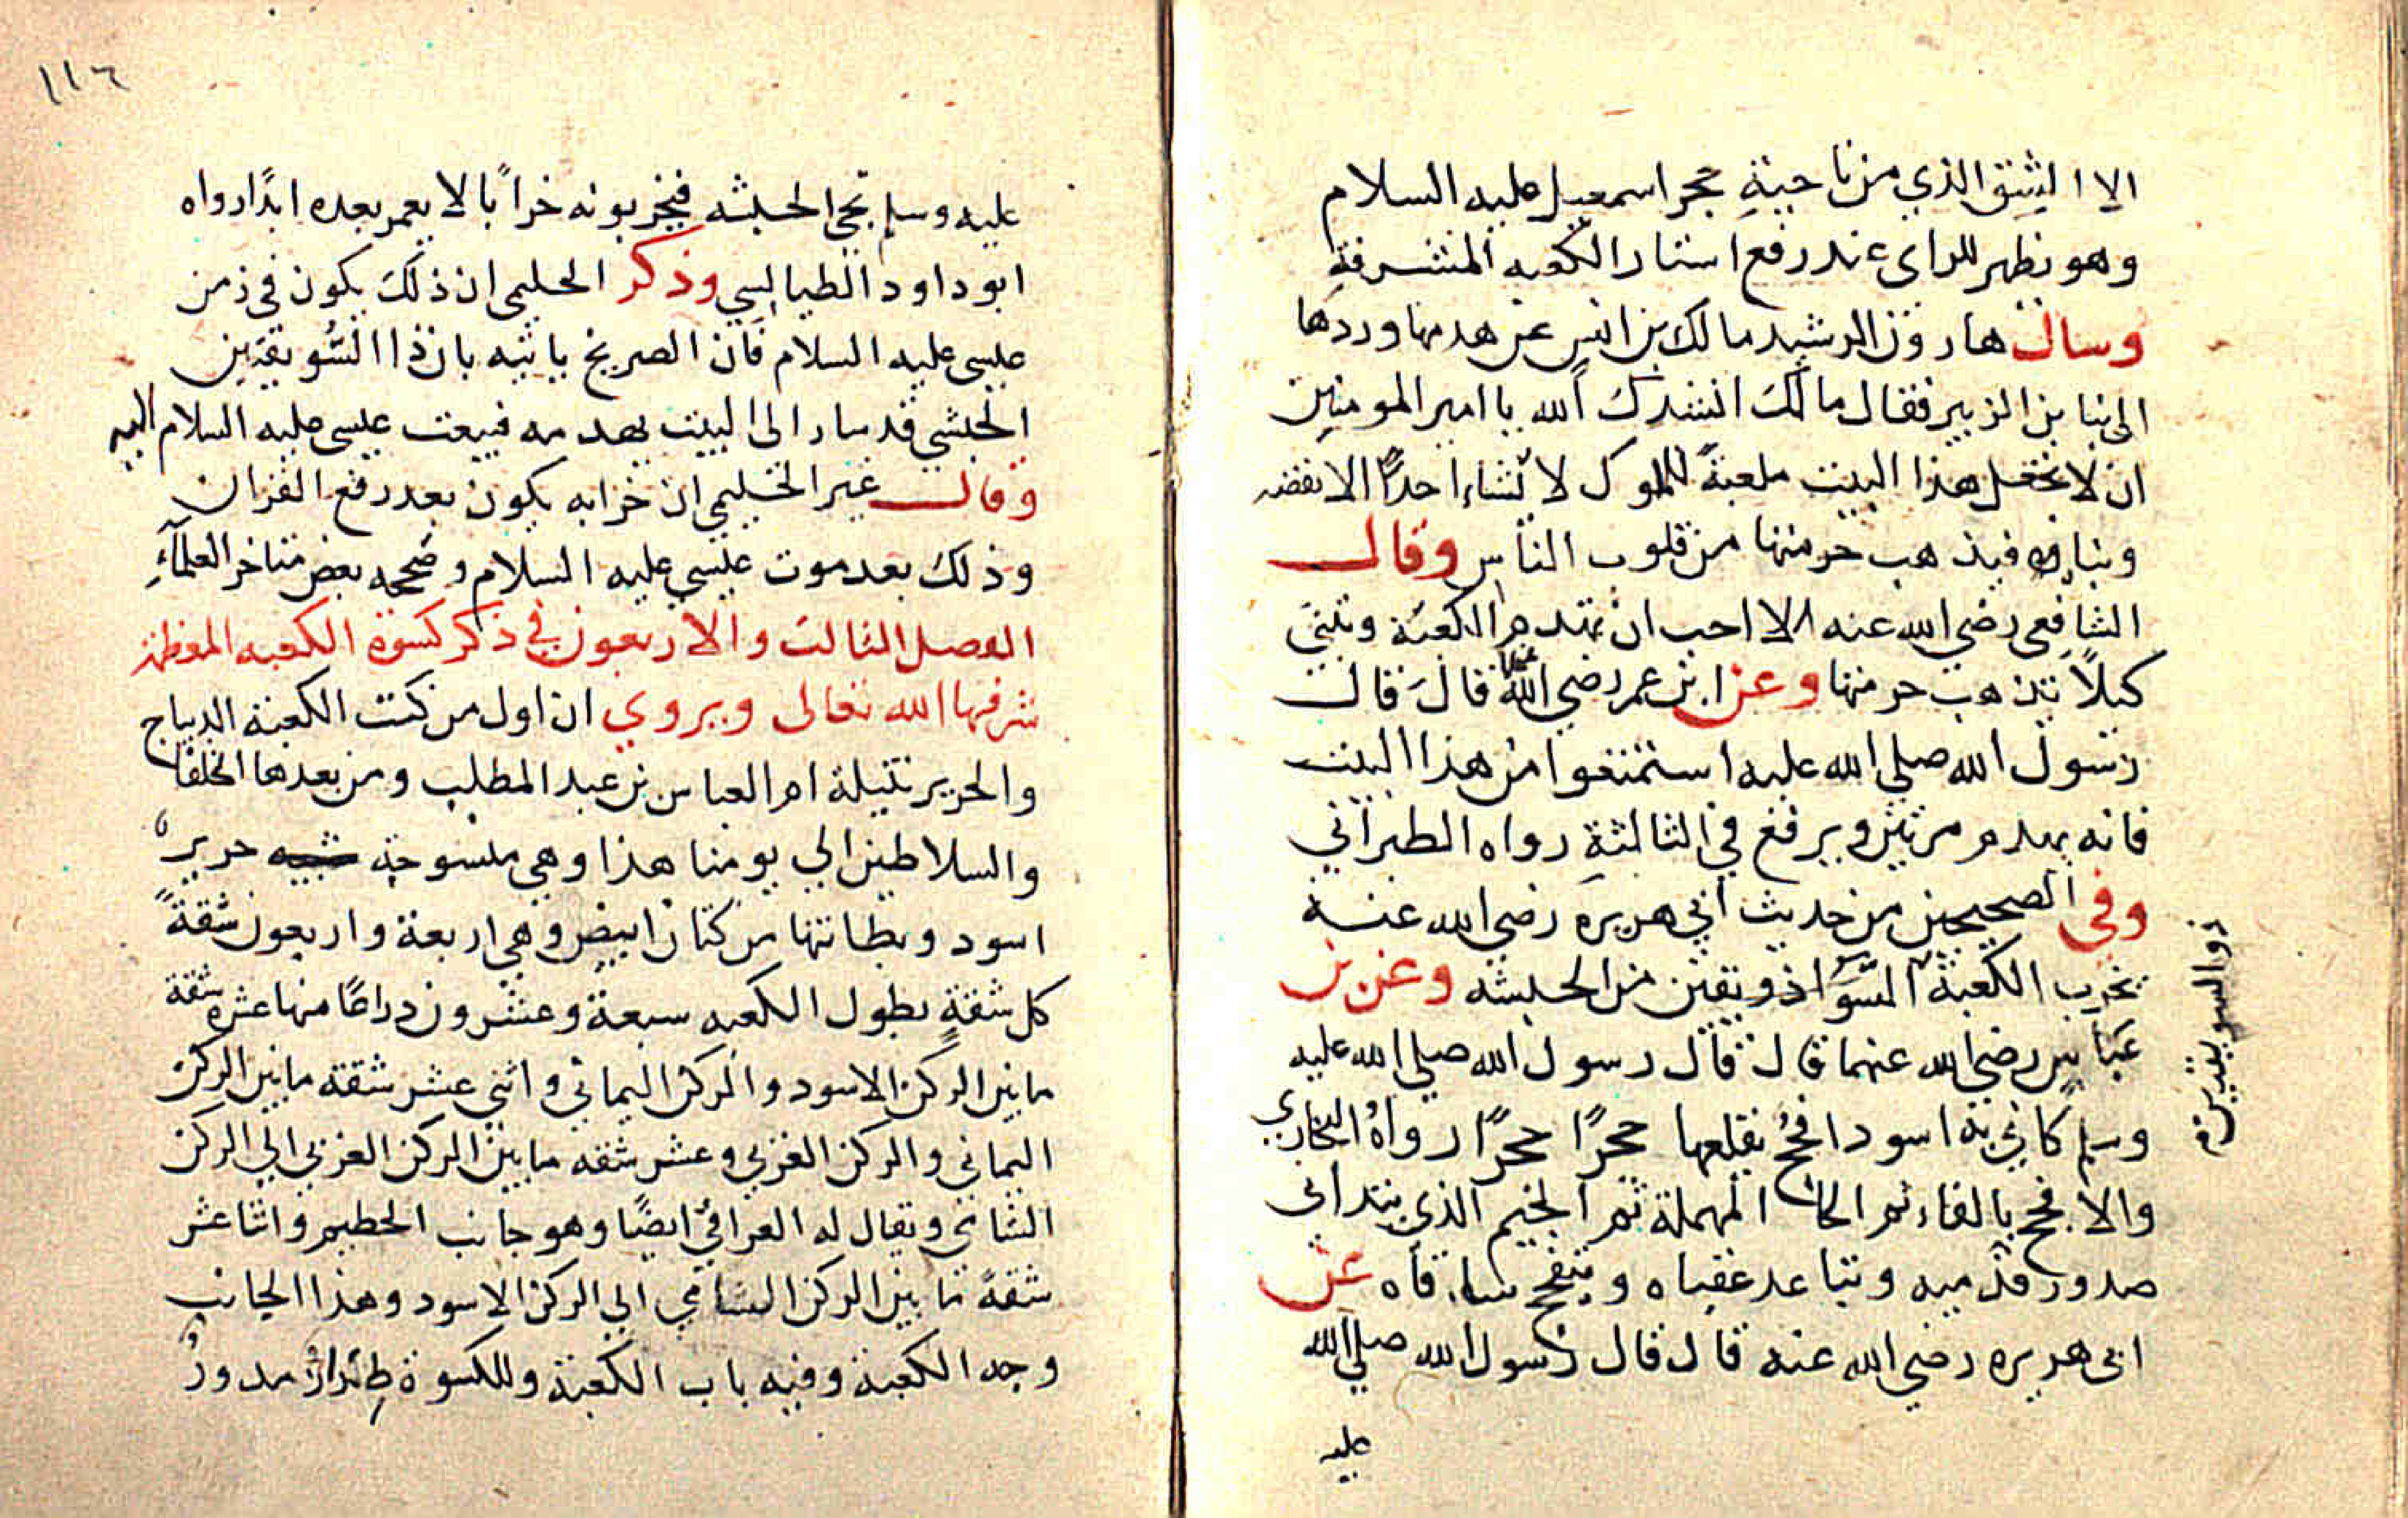 الا الشق الذي من ناحية حجر اسمعيل عليه السلام
وهو يظهر للراى عند رفع استار الكعبه المشرفة
وسال هارون الرشيد مالك بن انس عن هدمها وردها
الى بنا بن الزبير فقال مالك انشدك الله يا امير المومنين
ان لا تجعل هذا البيت ملعبة للملوك لا يشاء احدًا الا نقضه
وبناه فيذهب حرمتها من قلوب الناس وقال
الشافعي رضي الله عنه الا احب ان تهدم الكعبة وتبنى
كيلا يذهب حرمتها وعن ابن عمر رضي الله عنهما قال قال
رسول الله صلي الله عليه استمتعوا من هذا البيت
فانه يهدم مرتين ويرفع في الثالثة رواه الطبراني
وفي الصحيحين من حديث ابي هريره رضي الله عنه
يخرب الكعبة السواذويقتين من الحبشه وعن بن
ذوالسويقتين م
عباس رضي الله عنهما قال قال رسول الله صلي الله عليه
وسلم كاني به اسود افحج يقلعها حجرًا حجرًا رواه البخاري
والافحج بالفاء ثم الحا المهملة ثم الجيم الذي يتدانى
صدور قدميه ويتباعد عقباه ويتفحج ساقاه عن
ابى هريره رضي الله عنه قال قال رسول الله صلي الله
عليه
١١٦
عليه وسلم تجي الحبشه فيخربونه خرابًا لا يعمر بعده ابدًا رواه
ابو داود الطيالسي وذكر الحليمى ان ذلك يكون في زمن
عيسى عليه السلام فان الصريخ ياتيه بان ذا السويقتين
الحبشي قد سار الى البيت يهدمه فيبعث عيسى عليه السلام اليه
وقال غير الحليمي ان خرابه يكون بعد رفع القران
وذلك بعد موت عيسي عليه السلام وصححه بعض متاخر العلماء
الفصل الثالث والاربعون في ذكر كسوة الكعبه المعظمة
شرفها الله تعالى ويروي ان اول من كست الكعبة الديباج
والحرير نتيلة ام العباس بن عبد المطلب ومن بعدها الخلفا
والسلاطين الي يومنا هذا وهي منسوجة حرير
اسود وبطانتها من كتان ابيض وهي اربعة واربعون شقة
كل شقة بطول الكعبه سبعة وعشرون دراعًا منها عشره شقة
مابين الركن الاسود والركن اليماني واثني عشر شقة مابين الركن
اليماني والركن الغربي وعشر شقه مابين الركن الغربي الي الركن
الشامي ويقال له العراقي ايضًا وهو جانب الحطيم واثناعشر
شقة مابين الركن الشامي الي الركن الاسود وهذا الجانب
وجه الكعبة وفيه باب الكعبة وللكسوة طراز مدور